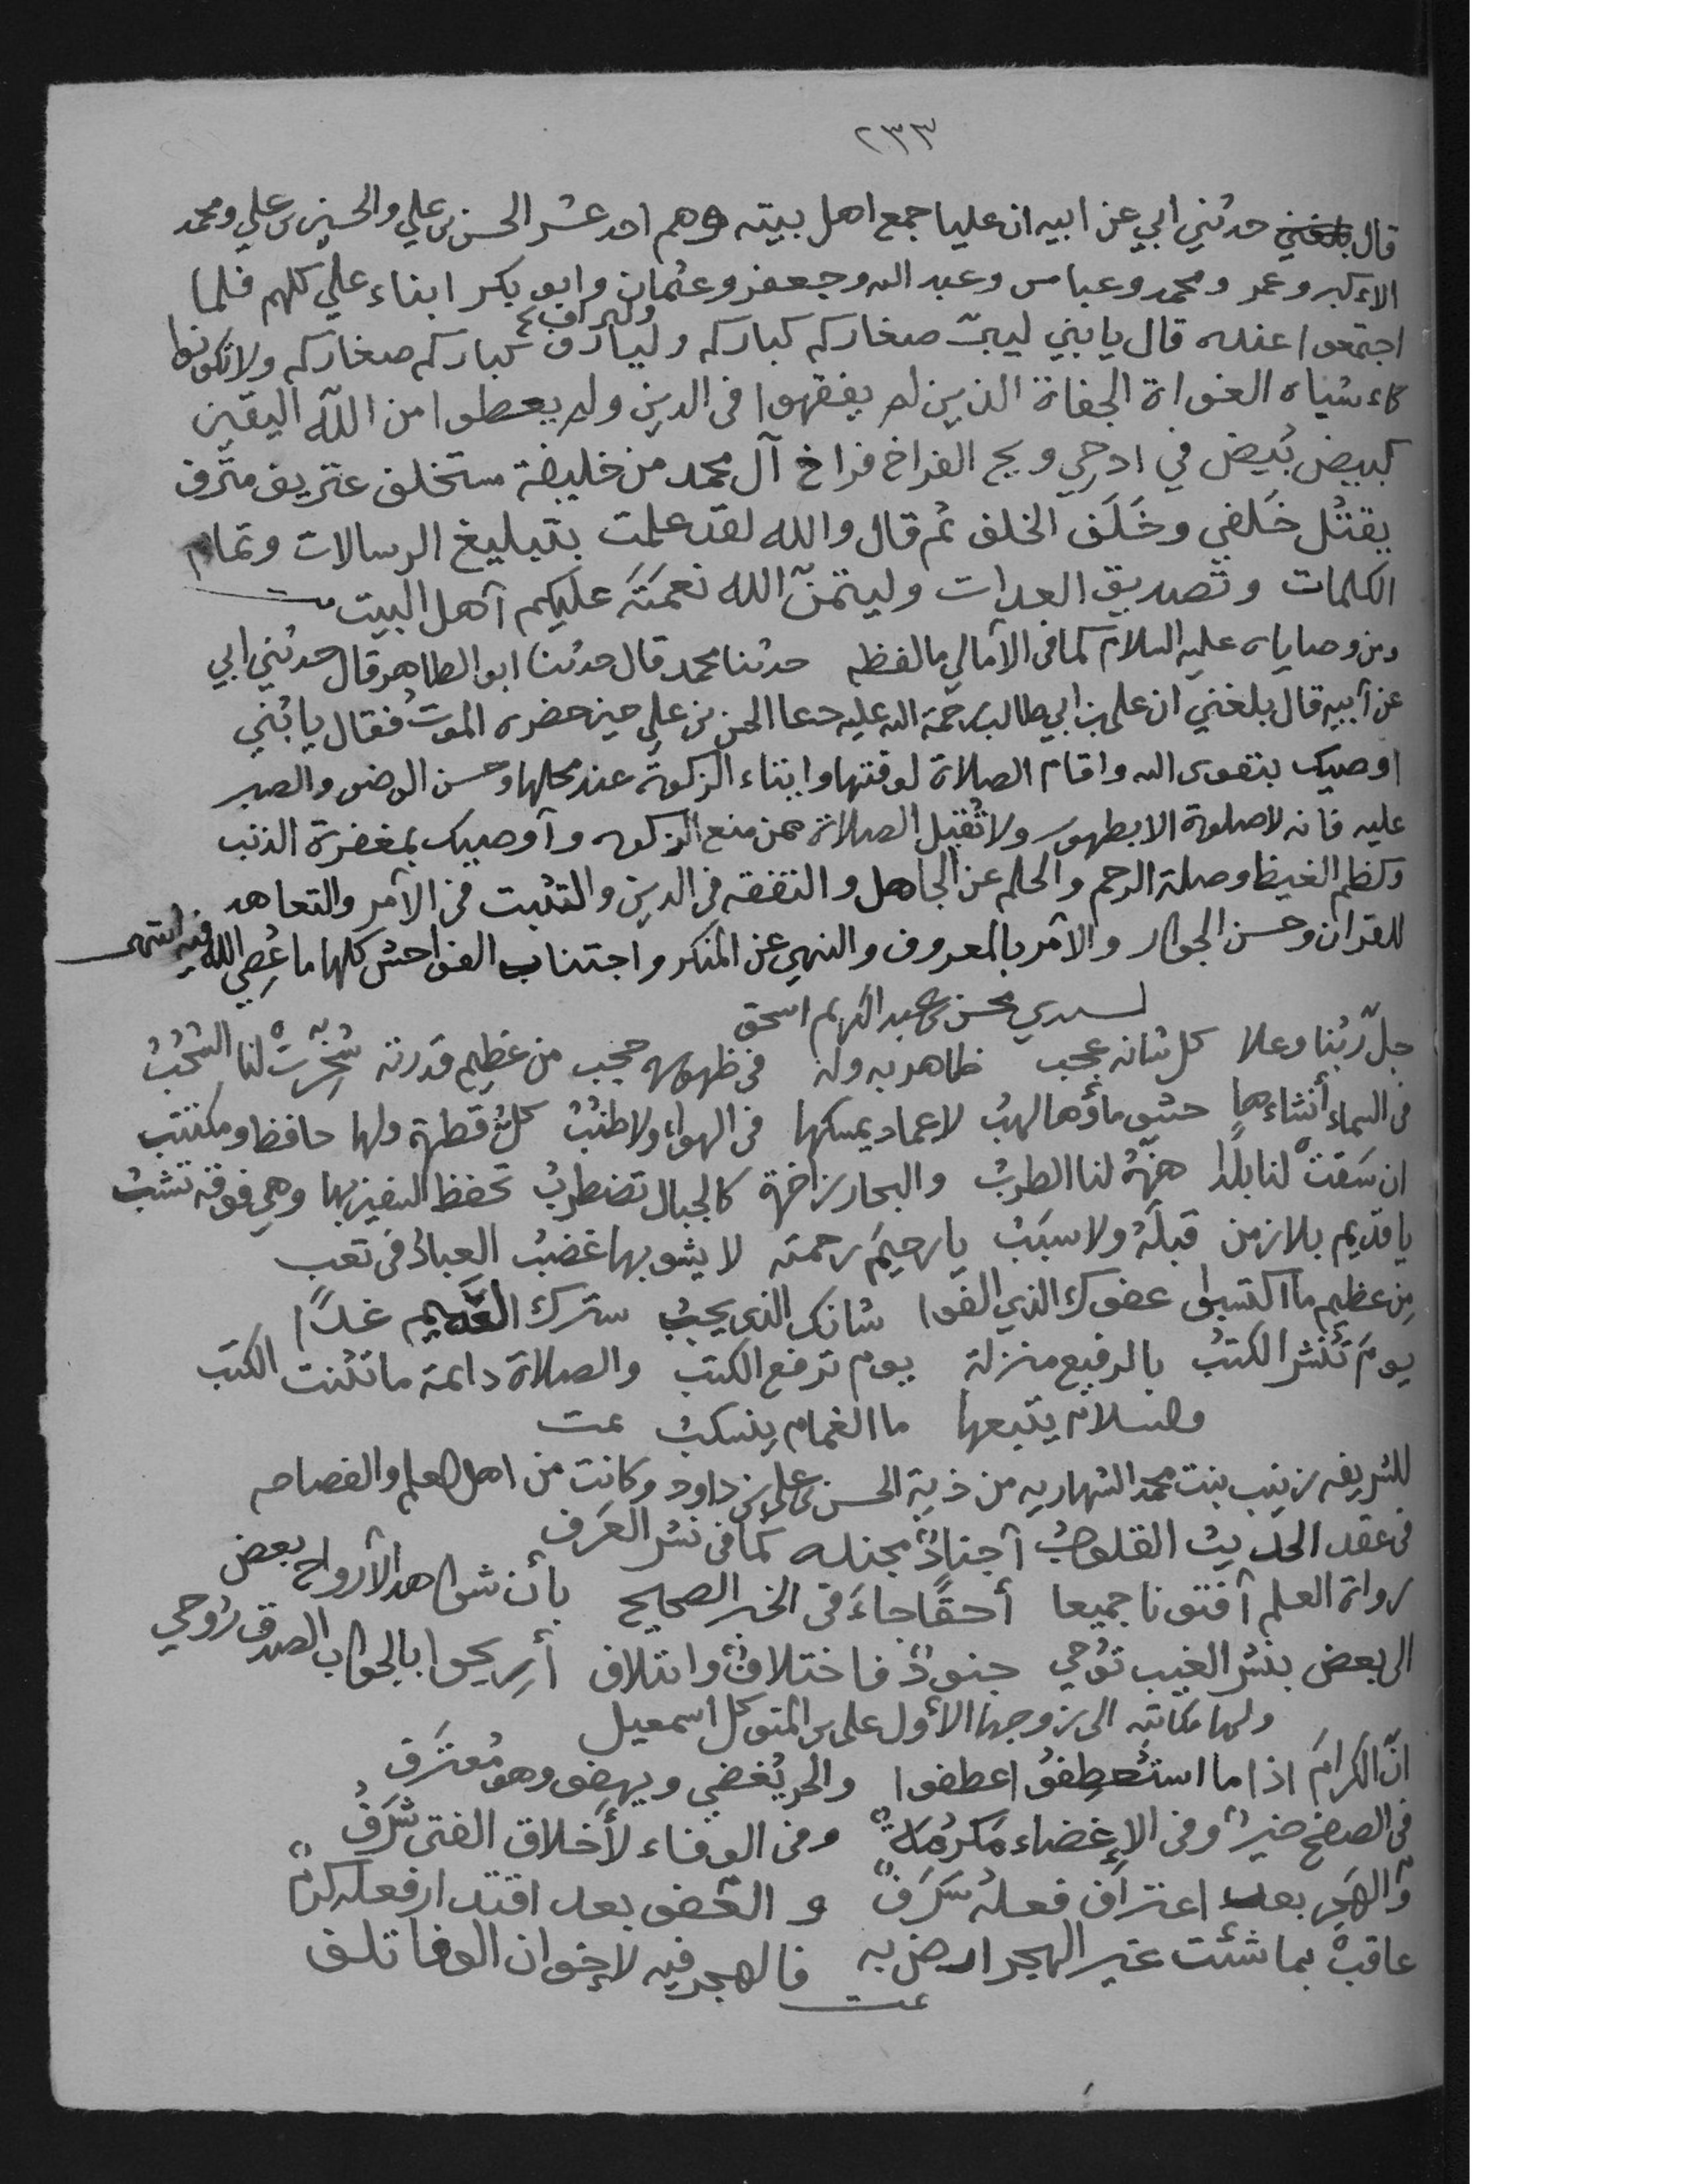 ٢٣٣
قال بلغني حدثني ابي عن ابيه ان عليا جمع اهل بيته وهم احد عشر الحسن بن علي والحسين بن علي ومحمد
الاءكبر وعمر ومحمد وعباس وعبد الله وجعفر وعثمان وابو بكر ابناء علي كلهم فلما
اجتمعوا عنده قال يا بني ليبرّ صغاركم كباركم وليارف وليراف كباركم صغاركم ولا تكونوا
كاءشباه الغواة الجفاة الذين لم يفقهوا في الدين ولم يعطوا من الله اليقين
كبيض بُيض في ادحي ويح الفراخ فراخ آل محمد من خليفة مستخلف عتريف مترف
يقتل خَلَفي وخَلَف الخلف ثم قال والله لقد علمت بتبليغ الرسالات وتمام
الكلمات وتصديق العدات وليتمنّ الله نعمته عليكم أهل البيت
ومن وصاياه عليه السلام كما في الأمالي ما لفظه حدثنا محمد قال حدثنا ابو الطاهر قال حدثني ابي
عن أبيه قال بلغني ان علي بن ابي طالب رحمة الله عليه دعا الحسن بن علي حين حضره الموت فقال يا بُني
اوصيك بتقوى الله واقام الصلاة لوقتها وايتاء الزكوة عند محلها وحسن الوضو والصبر
عليه فانه لا صلوة الا بطهور ولا تُقبل الصلاة ممن منع الزكوه وأوصيك بمغفرة الذنب
وكظم الغيظ وصلة الرحم والحلم عن الجاهل والتفقه في الدين والتثبت في الأمر والتعاهد
للقران وحسن الجوار والأمر بالمعروف والنهي عن المنكر واجتناب الفواحش كلها ما عُصِي الله فيه انتهى
لسيدي محسن بن عبد الكريم اسحق
جلّ ربُنا وعلا كل شانه عجب ظاهر به وله في ظهوره حجب من عظيم قدرته سُخّرتْ لنا السُحُبُ
في السماء أنشاءها ماؤها لهبُ لا عماد يمسكها في الهواء ولا طنُبُ كلُ قطرة ولها حافظ ومكتتب
ان سَقتْ لنا بلداً هزّهُ لنا الطربُ والبحار زاخرة كالجبال تضطربُ تحفظ السفين بها وهي فوقه تشبُ
يا قديم بلا زمن قبلَهُ ولا سبَبُ يا رحيمَ رحمته لا يشوبها غضبُ العباد في تعب
مِن عظيم ما اكتسبوا عفوك الذي الفوا شانك الذي يجبُ سترك القديم غداً
يومَ تُنشر الكتبُ بالرفيع منزلة يوم ترفع الكتب والصلاة دائمة ما تلَت الكتب
وسلام يتبعها ما الغمام ينسكبُ تمت
للشريفه زينب بنت محمد الشهاريه من ذرية الحسن بن علي بن داود وكانت من اهل العلم والفصاحه
في عقد الحديث القلوبُ أجنادٌ مجنده كما في نشر العَرف
رواة العلم أفتونا جميعا أحقاً جاءَ في الخبر الصحيح بأن شواهد الأرواح بعض
الى بعض بنشر الغيب تُوحي جنودٌ فاختلافٌ وائتلاف أريحوا بالجواب الصدق رُوحي
ولها مكاتبه الى زوجها الأول علي بن المتوكل اسمعيل
انّ الكرامَ اذا ما استُعطِفوُ اعطفوا والحر يُغضي ويهفو وهو مُعترَف
في الصفح خيرٌ وفي الإغضاء مَكرُمَةٌ وفي الوفاء لأخلاق الفتى شَرَفُ
والهَجر بعد اعتراف فعلُهُ سَرَفٌ والعفو بعد اقتدار فعله كرمٌ
عاقبْ بما شئت غير الهجر ارض به فالهجر فيه لإخوان الوفا تلف
تمت